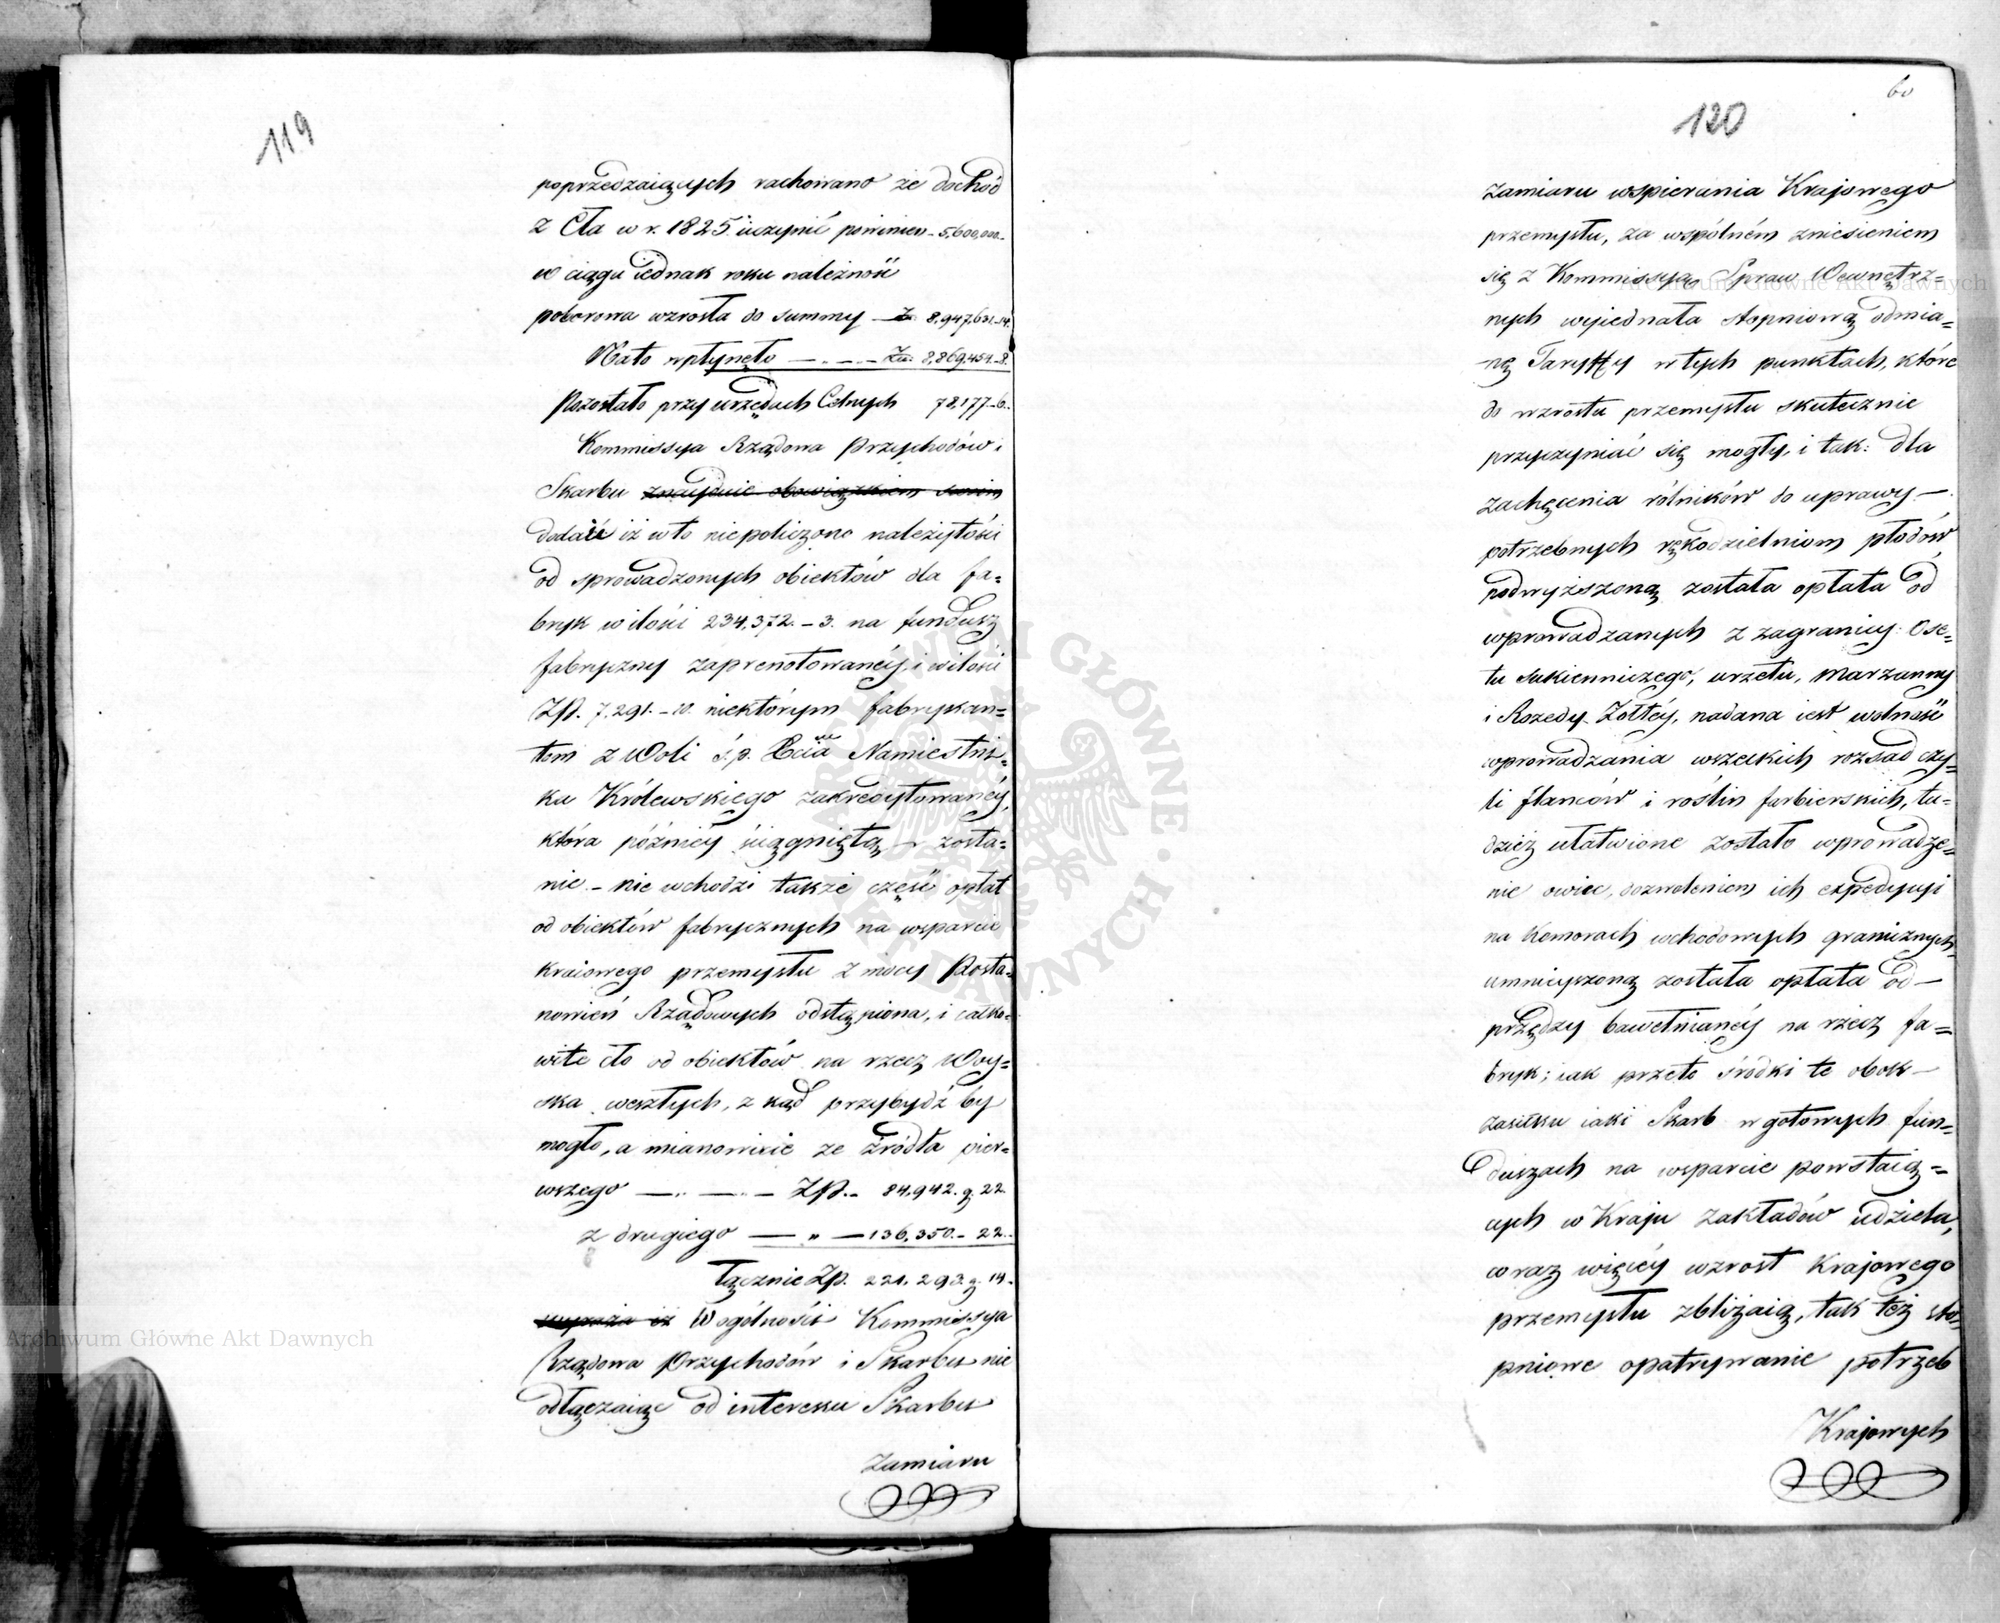 119
poprzedzaiących rachowano że dochód
z Cła w r. 1825. uczynić powinien - 5,600,000.-
w ciągu iednak roku należność
poborowa wzrosła do summy — Z 8,947,631.-14.
Nato wpłynęło — . — . — Zł: 8,869,454.-8.
Pozostało przy urzędach Celnych 78,177.-6.
Kommissya Rządowa Przychodów i
Skarbu znayduie obowiązkiem swoim
dodać iż wto niepoliczono należytości
od sprowadzonych obiektów dla fa=
bryk w ilości 234,372.-3. na fundusz
fabryczny zaprenotowanéy, i w ilości
Zp. 7,291.-10. niektórym fabrykan=
tom z Woli ś. p. Xcia Namiestni=
ka Królewskiego zakredytowanéy,
która późniéy ściągniętą zosta=
nie. - Nie wchodzi także część opłat
od obiektów fabrycznych na wsparcie
kraiowego przemysłu z mocy Posta=
nowień Rządowych odstąpiona, i całko=
wite cło od obiektów na rzecz Woy=
ska weszłych, z kąd przybydź by
mogło, a mianowicie ze źródła pier=
wszego —..—..— Zp.- 84,942. g. 22.
z drugiego — " — 136,350.- 22.
łącznie Zp. 221,293. g. 14.
wyraża iż W ogólności Kommissya
Rządowa Przychodów i Skarbu nie
odłączaiąc od interesu Skarbu
Zamiaru
60
120
zamiaru wspierania Krajowego
przemysłu, za wspólném zniesieniem
się z Kommissyą Spraw Wewnętrz=
nych wyiednała stopniową odmia=
nę Taryffy w tych punktach, które
do wzrostu przemysłu skutecznie
przyczyniać się mogły, i tak: dla
zachęcenia rólników do uprawy —
potrzebnych rękodzielniom płodów
podwyższoną została opłata od
wprowadzanych z zagranicy: Ose=
tu sukienniczego, urzetu, Marzanny
i Rozedy Żółtéy, nadana iest wolność
wprowadzania wszelkich rozsad czy=
li flanców i roślin farbierskich, tu=
dzież ułatwione zostało wprowadze=
nie owiec, dozwoleniem ich expedycyi
na Komorach wchodowych granicznych,
umnieyszoną została opłata od —
przędzy bawełnianéy na rzecz fa=
bryk; iak przeto śródki te obok —
zasiłku iaki Skarb w gotowych fun=
duszach na wsparcie powstaią=
cych w Kraju zakładów udziela,
coraz więcéy wzrost Krajowego
przemysłu zbliżaią, tak też sto=
pniowe opatrywanie potrzeb
Krajowych
Archiwum Główne Akt Dawnych
Archiwum Główne Akt Dawnych
ARCHIWUM GŁÓWNE AKT DAWNYCH